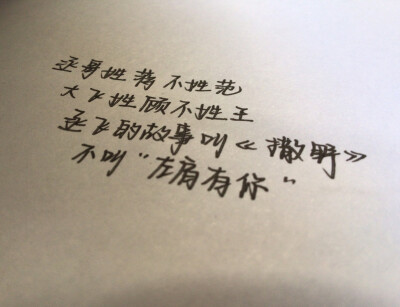 丞哥姓蒋不姓范
大飞姓顾不姓王
丞飞的故事叫《撒野》
不叫“左肩有你”